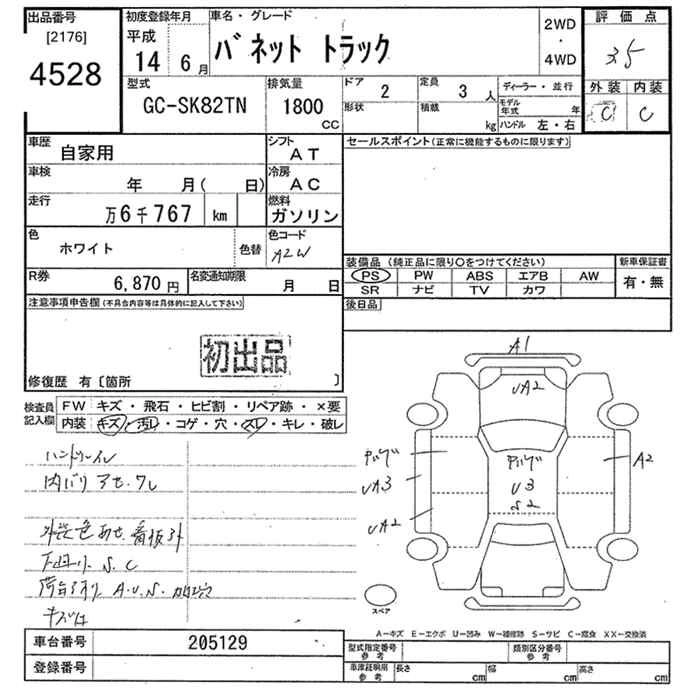 出品番号
[2176]
4528
初度登録年月
平成
14 6月
車名・グレード
バネット トラック
2WD
・
4WD
評価点
3.5
外装 内装
C C
型式
GC-SK82TN
排気量
1800
CC
ドア
2
形状
定員
3人
積載
kg
ディーラー・並行
モデル年式 年
ハンドル 左・右
車歴
自家用
シフト
AT
車検
年 月( 日)
冷房
AC
走行
万6千767 km
燃料
ガソリン
色
ホワイト
色替
色コード
A2W
R券
6,870円
名変通知期限
月 日
セールスポイント(正常に機能するものに限ります)
装備品 (純正品に限り○をつけてください)
PS PW ABS エアB AW
SR ナビ TV カワ
新車保証書
有・無
後日品
注意事項申告欄(不具合内容等は具体的に記入して下さい)
初出品
修復歴 有〔箇所 〕
検査員記入欄
FW キズ・飛石・ヒビ割・リペア跡・×要
内装 キズ・汚レ・コゲ・穴・スレ・キレ・破レ
ハンドルスレ
内バリ アセ・ワレ
外装色あせ 看板跡
下回り S.C
荷台周り A.U.S.
A1
UA2
UA3
UA2
U3
S2
A2
スペア
A-キズ E-エクボ U-凹み W-補修跡 S-サビ C-腐食 XX-交換済
車台番号
205129
登録番号
型式指定番号
参考
類別区分番号
参考
車庫証明用
参考
長さ cm
幅 cm
高さ cm